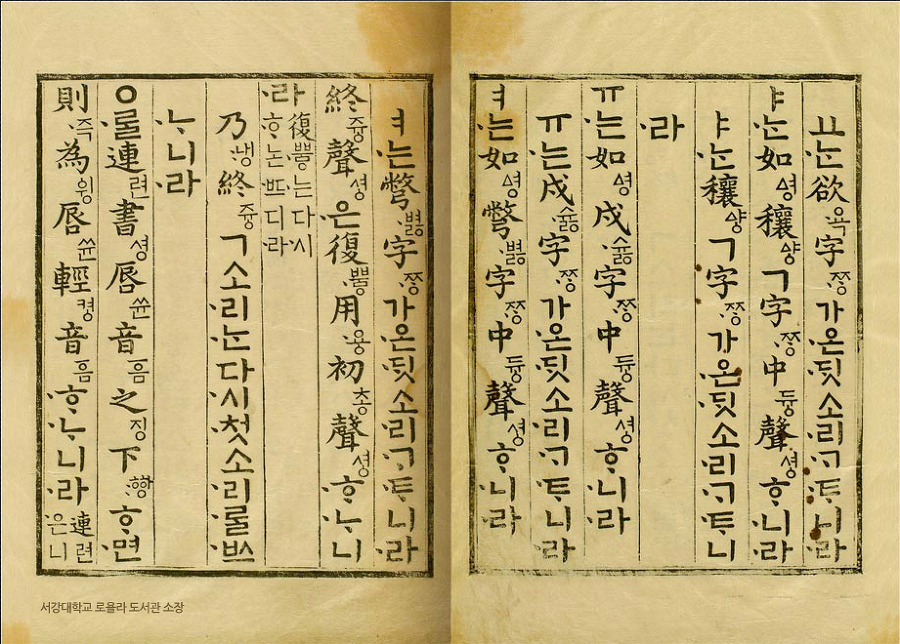 ㅛᄂᆞᆫ欲욕字ᄍᆞᆼ가온ᄃᆡᆺ소리ᄀᆞᄐᆞ니라
ㅑᄂᆞᆫ如ᅀᅧᆼ穰ᅀᅣᇰㄱ字ᄍᆞᆼ中듀ᇰ聲셔ᇰᄒᆞ니라
ㅑᄂᆞᆫ穰ᅀᅣᇰㄱ字ᄍᆞᆼ가온ᄃᆡᆺ소리ᄀᆞᄐᆞ니
라
ㅠ는如ᅀᅧᆼ戌슈ᇙ字ᄍᆞᆼ中듀ᇰ聲셔ᇰᄒᆞ니라
ㅠ는戌슈ᇙ字ᄍᆞᆼ가온ᄃᆡᆺ소리ᄀᆞᄐᆞ니라
ㅕ는如ᅀᅧᆼ彆벼ᇙ字ᄍᆞᆼ中듀ᇰ聲셔ᇰᄒᆞ니라
ㅕ는彆벼ᇙ字ᄍᆞᆼ가온ᄃᆡᆺ소리ᄀᆞᄐᆞ니라
終쥬ᇰ聲셔ᇰ은復뿌ᇢ用요ᇰ初총聲셔ᇰᄒᆞᄂᆞ니
라復뿌ᇢ는다시ᄒᆞ논ᄠᅳ디라
乃냉終쥬ᇰㄱ소리ᄂᆞᆫ다시첫소리ᄅᆞᆯᄡᅳ
ᄂᆞ니라
ㅇᄅᆞᆯ連련書셔ᇰ脣쓘音ᅙᅳᆷ之징下ᅘᅡᆼᄒᆞ면
則즉為윙脣쓘輕켜ᇰ音ᅙᅳᆷᄒᆞᄂᆞ니라連련은니
서강대학교 로욜라 도서관 소장